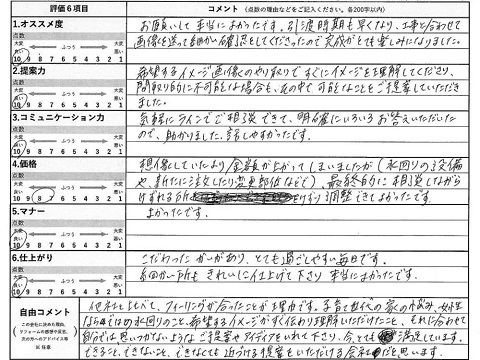 評価6項目
コメント (点数の理由などをご記入ください。各200字以内)
1.オススメ度
点数
大変良い ふつう 大変悪い
10 9 8 7 6 5 4 3 2 1
お願いして本当によかったです。引渡時期も早くなり、工事と合わせて
画像を送って細かい確認をしてくださったので完成がとても楽しみになりました。
2.提案力
点数
大変良い ふつう 大変悪い
10 9 8 7 6 5 4 3 2 1
希望するイメージ画像のやり取りですぐにイメージを理解してくださり、
間取り的に不可能な場合も、その中で可能なことをご提案していただき
ました。
3.コミュニケーション力
点数
大変良い ふつう 大変悪い
10 9 8 7 6 5 4 3 2 1
気軽にラインでご相談できて、明確にいろいろお答えいただいた
ので、助かりました。話しやすかったです。
4.価格
点数
大変良い ふつう 大変悪い
10 9 8 7 6 5 4 3 2 1
想像していたより金額が上がってしまいましたが(水回りの設備
や、新たに注文した変更部位などで)、最終的に相談しながら
けずれる所 けずり調整できてよかったです。
5.マナー
点数
大変良い ふつう 大変悪い
10 9 8 7 6 5 4 3 2 1
よかったです。
6.仕上がり
点数
大変良い ふつう 大変悪い
10 9 8 7 6 5 4 3 2 1
こだわったかいがあり、とても過ごしやすい毎日です。
細かい所もきれいに仕上げて下さり本当によかったです。
自由コメント
(この会社に決めた理由、リフォームの感想、変化、次の方へのアドバイス等)
※任意
他社と比べて、フィーリングが合ったことが理由です。子育て世代の家の悩み、女性
ならではの水回りのこと、希望するイメージがすぐ伝わり理解いただけたこと、それに合わせて
自分では思いつかないようなご提案やアイデアをいれて下さり、今、とても満足しています。
できること、できないこと、できなくても近づける提案をいただける会社だと思います。